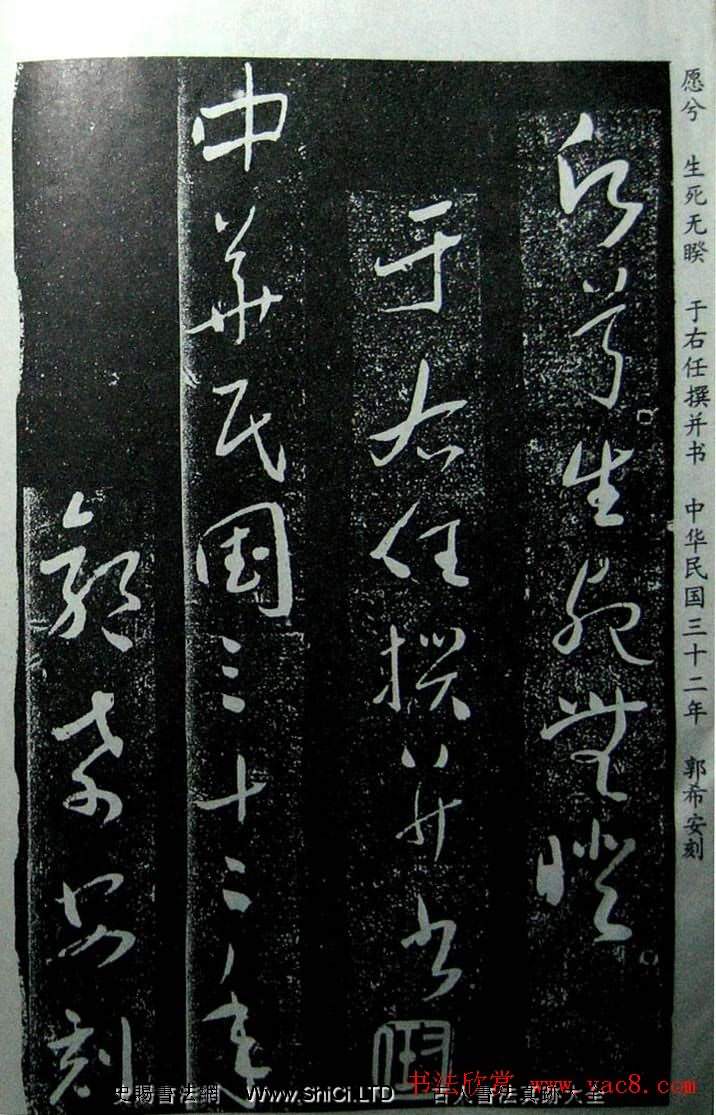 愿兮 生死无睽 于右任撰并书 中华民国三十二年 郭希安刻
兮生死無睽
于右任撰并书
中華民国三十二年
郭希安刻
史賜書法網 WWW.ShiCi.LTD 古人書法真跡大全
书法欣赏 www.yac8.com